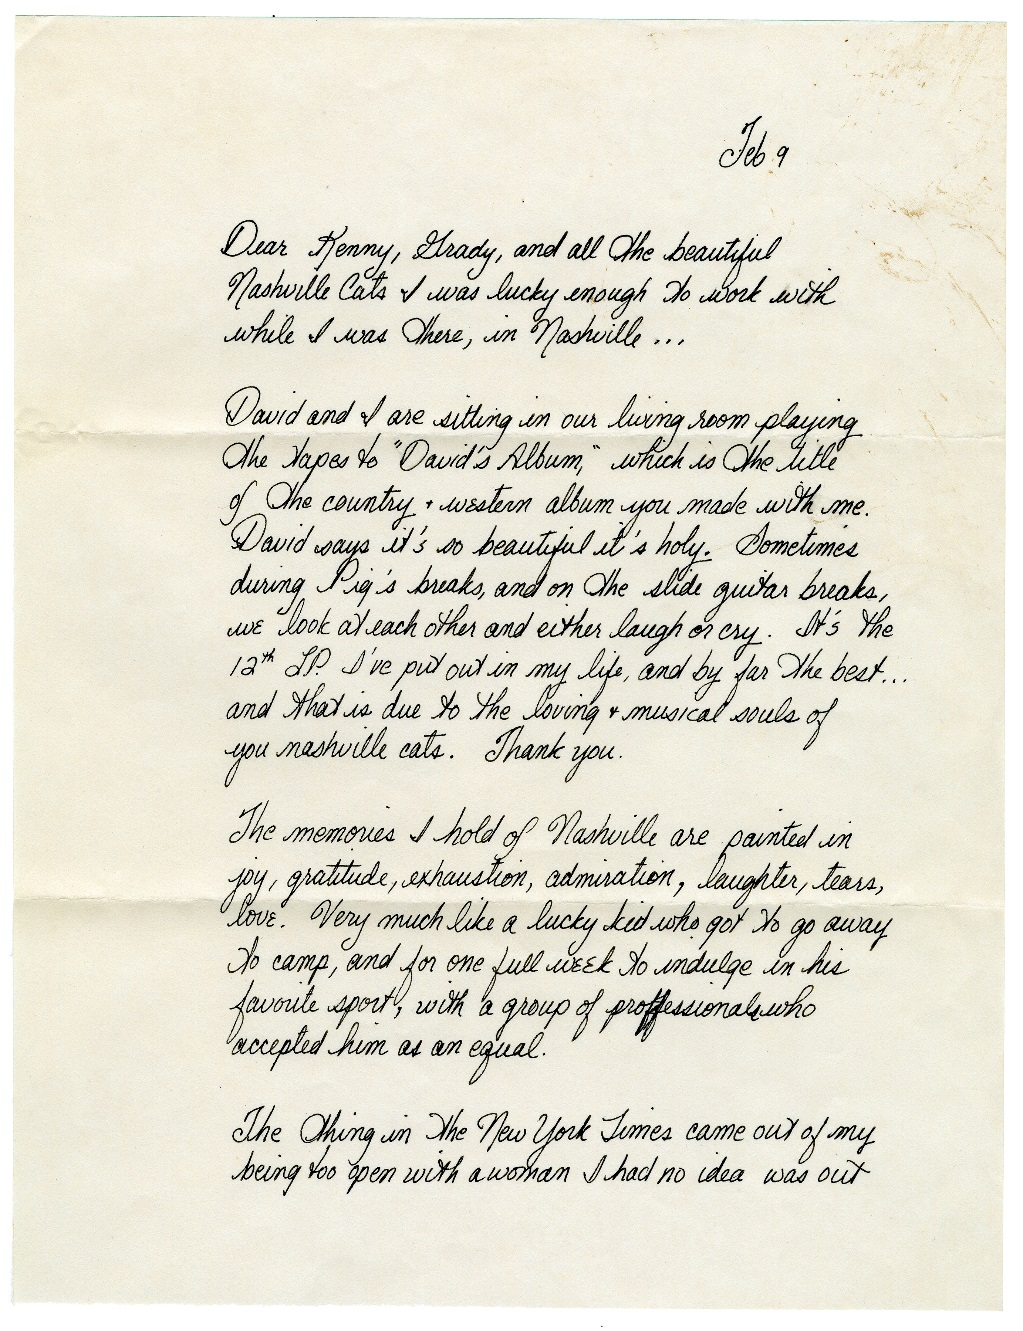 Feb 9
Dear Kenny, Grady, and all the beautiful
Nashville Cats I was lucky enough to work with
while I was there, in Nashville ...
David and I are sitting in our living room playing
the tapes to "David's Album," which is the title
of the country + western album you made with me.
David says it's so beautiful it's holy. Sometimes
during Pig's breaks, and on the slide guitar breaks,
we look at each other and either laugh or cry. It's the
12th LP. I've put out in my life, and by far the best...
and that is due to the loving + musical souls of
you nashville cats. Thank you.
The memories I hold of Nashville are painted in
joy, gratitude, exhaustion, admiration, laughter, tears,
love. Very much like a lucky kid who got to go away
to camp, and for one full week to indulge in his
favorite sport, with a group of proffessionals who
accepted him as an equal.
The thing in the New York Times came out of my
being too open with a woman I had no idea was out